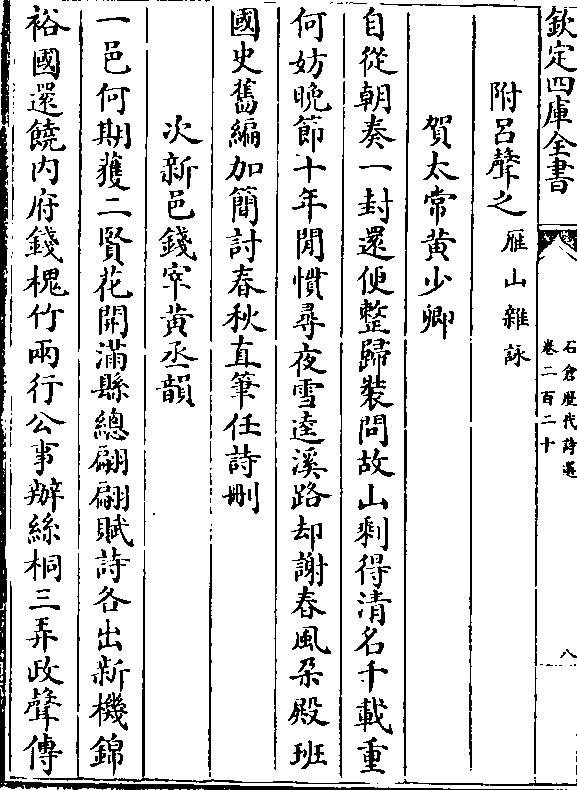 欽定四庫全書
石倉歷代詩選
卷二百二十
八
附呂聲之雁山雜詠
賀太常黃少卿
自從朝奏一封還便整歸裝問故山剩得清名千載重
何妨晚節十年閒慣尋夜雪逺溪路却謝春風朶殿班
國史舊編加簡討春秋直筆任詩刪
次新邑錢宰黃丞韻
一邑何期獲二賢花開滿縣總翩翩賦詩各出新機錦
裕國還饒内府錢槐竹兩行公事辦絲桐三弄政聲傳